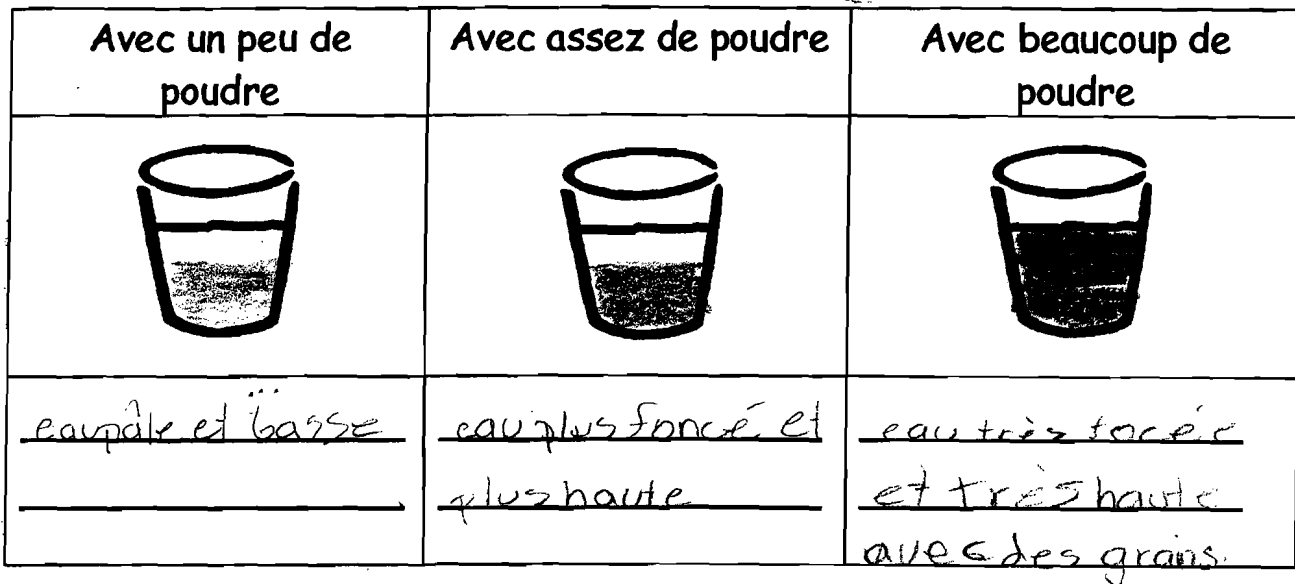 Avec un peu de
poudre
Avec assez de poudre
Avec beaucoup de
poudre
eau pâle et basse
eau plus foncé et
plus haute
eau très focée
et très haute
avec des grains.